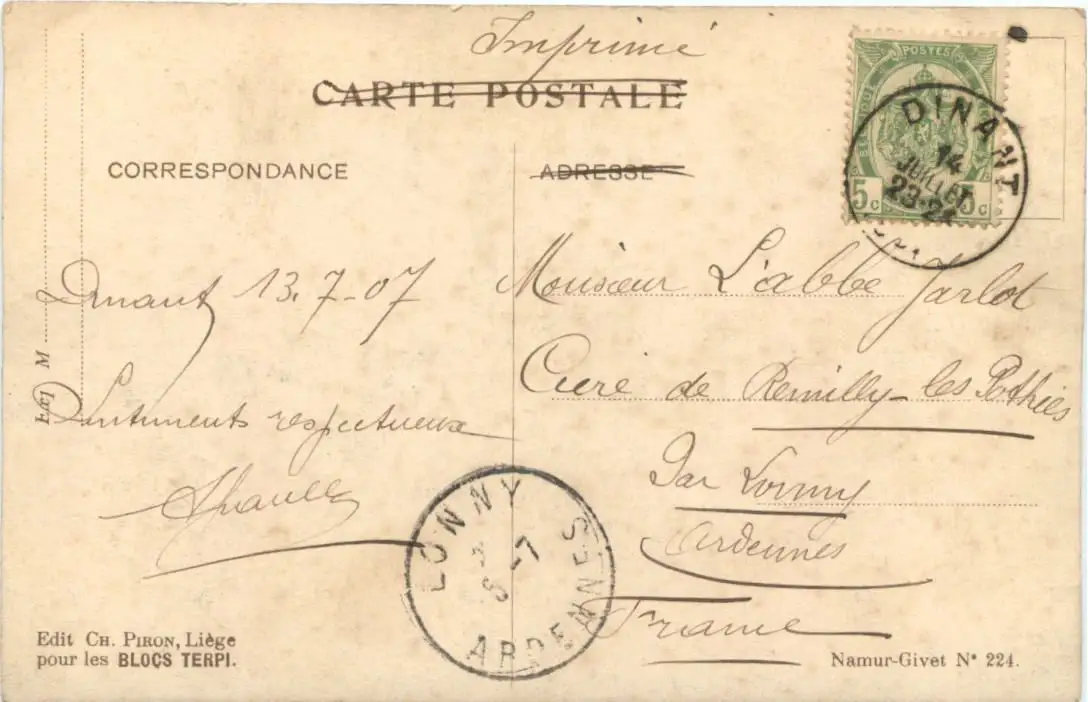 Imprimé
CARTE POSTALE
POSTES
5c 5c
DINANT
14
JUILLET
23-24
CORRESPONDANCE
ADRESSE
Dinant 13.7-07
Sentiments respectueux
Monsieur L'abbé Jarlot
Curé de Remilly-les Pothées
Par Lonny
Ardennes
France
LONNY
ARDENNES
Edit CH. PIRON, Liège
pour les BLOCS TERPI.
Namur-Givet N° 224.